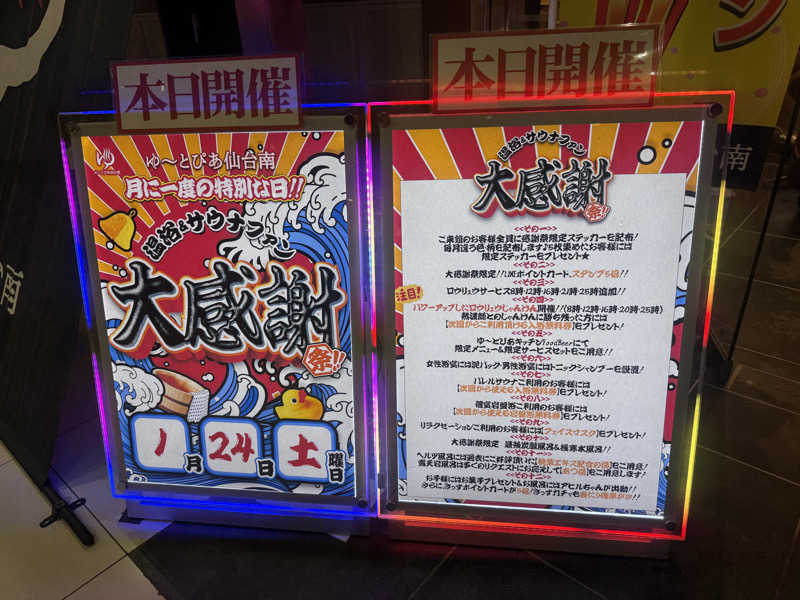 本日開催
ゆ〜とぴあ仙台南
月に一度の特別な日!!
温浴&サウナファン
大感謝
祭!!
1月24日土曜日
本日開催
温浴&サウナファン
大感謝
祭!!
<<その一>>
ご来館のお客様全員に感謝祭限定ステッカーを配布!
毎月違う色・柄を配布します♪5枚集めたお客様には
限定ステッカーをプレゼント★
<<その二>>
大感謝祭限定!LINEポイントカード、スタンプ5倍!!
<<その三>>
ロウリュウサービス8時・12時・16時・21時・25時追加!!
<<その四>>
注目!
パワーアップしたロウリュウじゃんけん開催!!(8時・12時・16時・20時・25時)
熱波師とのじゃんけんに勝ち残った方には
【次回からご利用頂ける入浴無料券】をプレゼント!
<<その五>>
ゆ〜とぴあキッチンFoodBeerにて
限定メニュー&限定サービスセットをご用意!!
<<その六>>
女性浴室には泥パック・男性浴室にはトニックシャンプーを設置!
<<その七>>
バレルサウナご利用のお客様には
【次回から使える入浴無料券】をプレゼント!
<<その八>>
個室岩盤浴ご利用のお客様には
【次回から使える岩盤浴無料券】をプレゼント!
<<その九>>
リラクゼーションご利用のお客様には【フェイスマスク】をプレゼント!
<<その十>>
大感謝祭限定
<<その十一>>
ヘルツ風呂には過去にご好評頂いた
をご用意!
露天岩風呂は多くのリクエストにお応えして
をご用意します!
<<その十二>>
お子様にはお菓子プレゼント&お風呂にはアヒルちゃんが出動!!
南